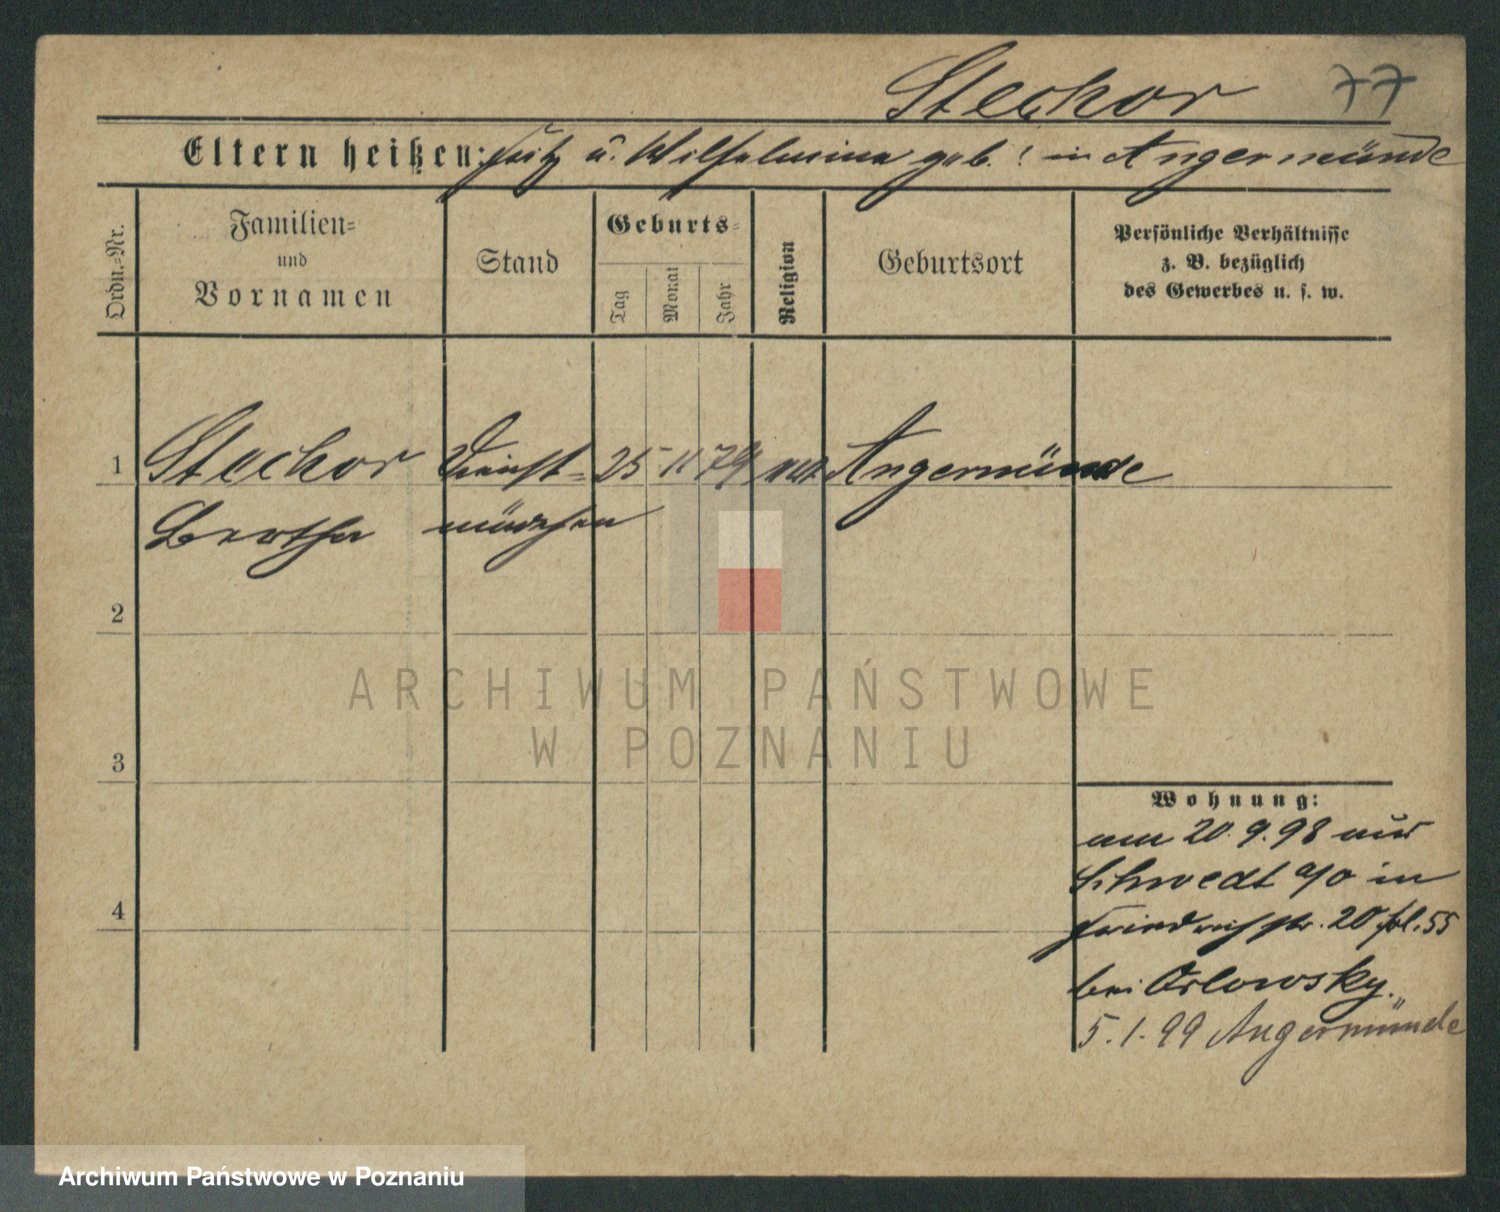 Stechor 77
Eltern heißen: Fritz u. Wilhelmine geb. ? in Angermünde
Ordn.-Nr.
Familien-
und
Vornamen
Stand
Geburts-
Tag
Monat
Jahr
Religion
Geburtsort
Persönliche Verhältnisse
z. B. bezüglich
des Gewerbes u. s. w.
1 Stechor Dienst- 25 11 79 Angermünde
Bertha mädchen
2
3
4
ARCHIWUM PAŃSTWOWE
W POZNANIU
Wohnung:
am 20.9.98 aus
Schwedt a/o in
Friedrichstr. 20 fol. 55
bei Orlowsky.
5.1.99 Angermünde
Archiwum Państwowe w Poznaniu